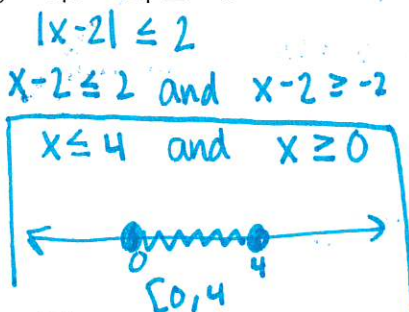 |x-2| ≤ 2
x-2 ≤ 2 and x-2 ≥ -2
x ≤ 4 and x ≥ 0
0 4
[0, 4